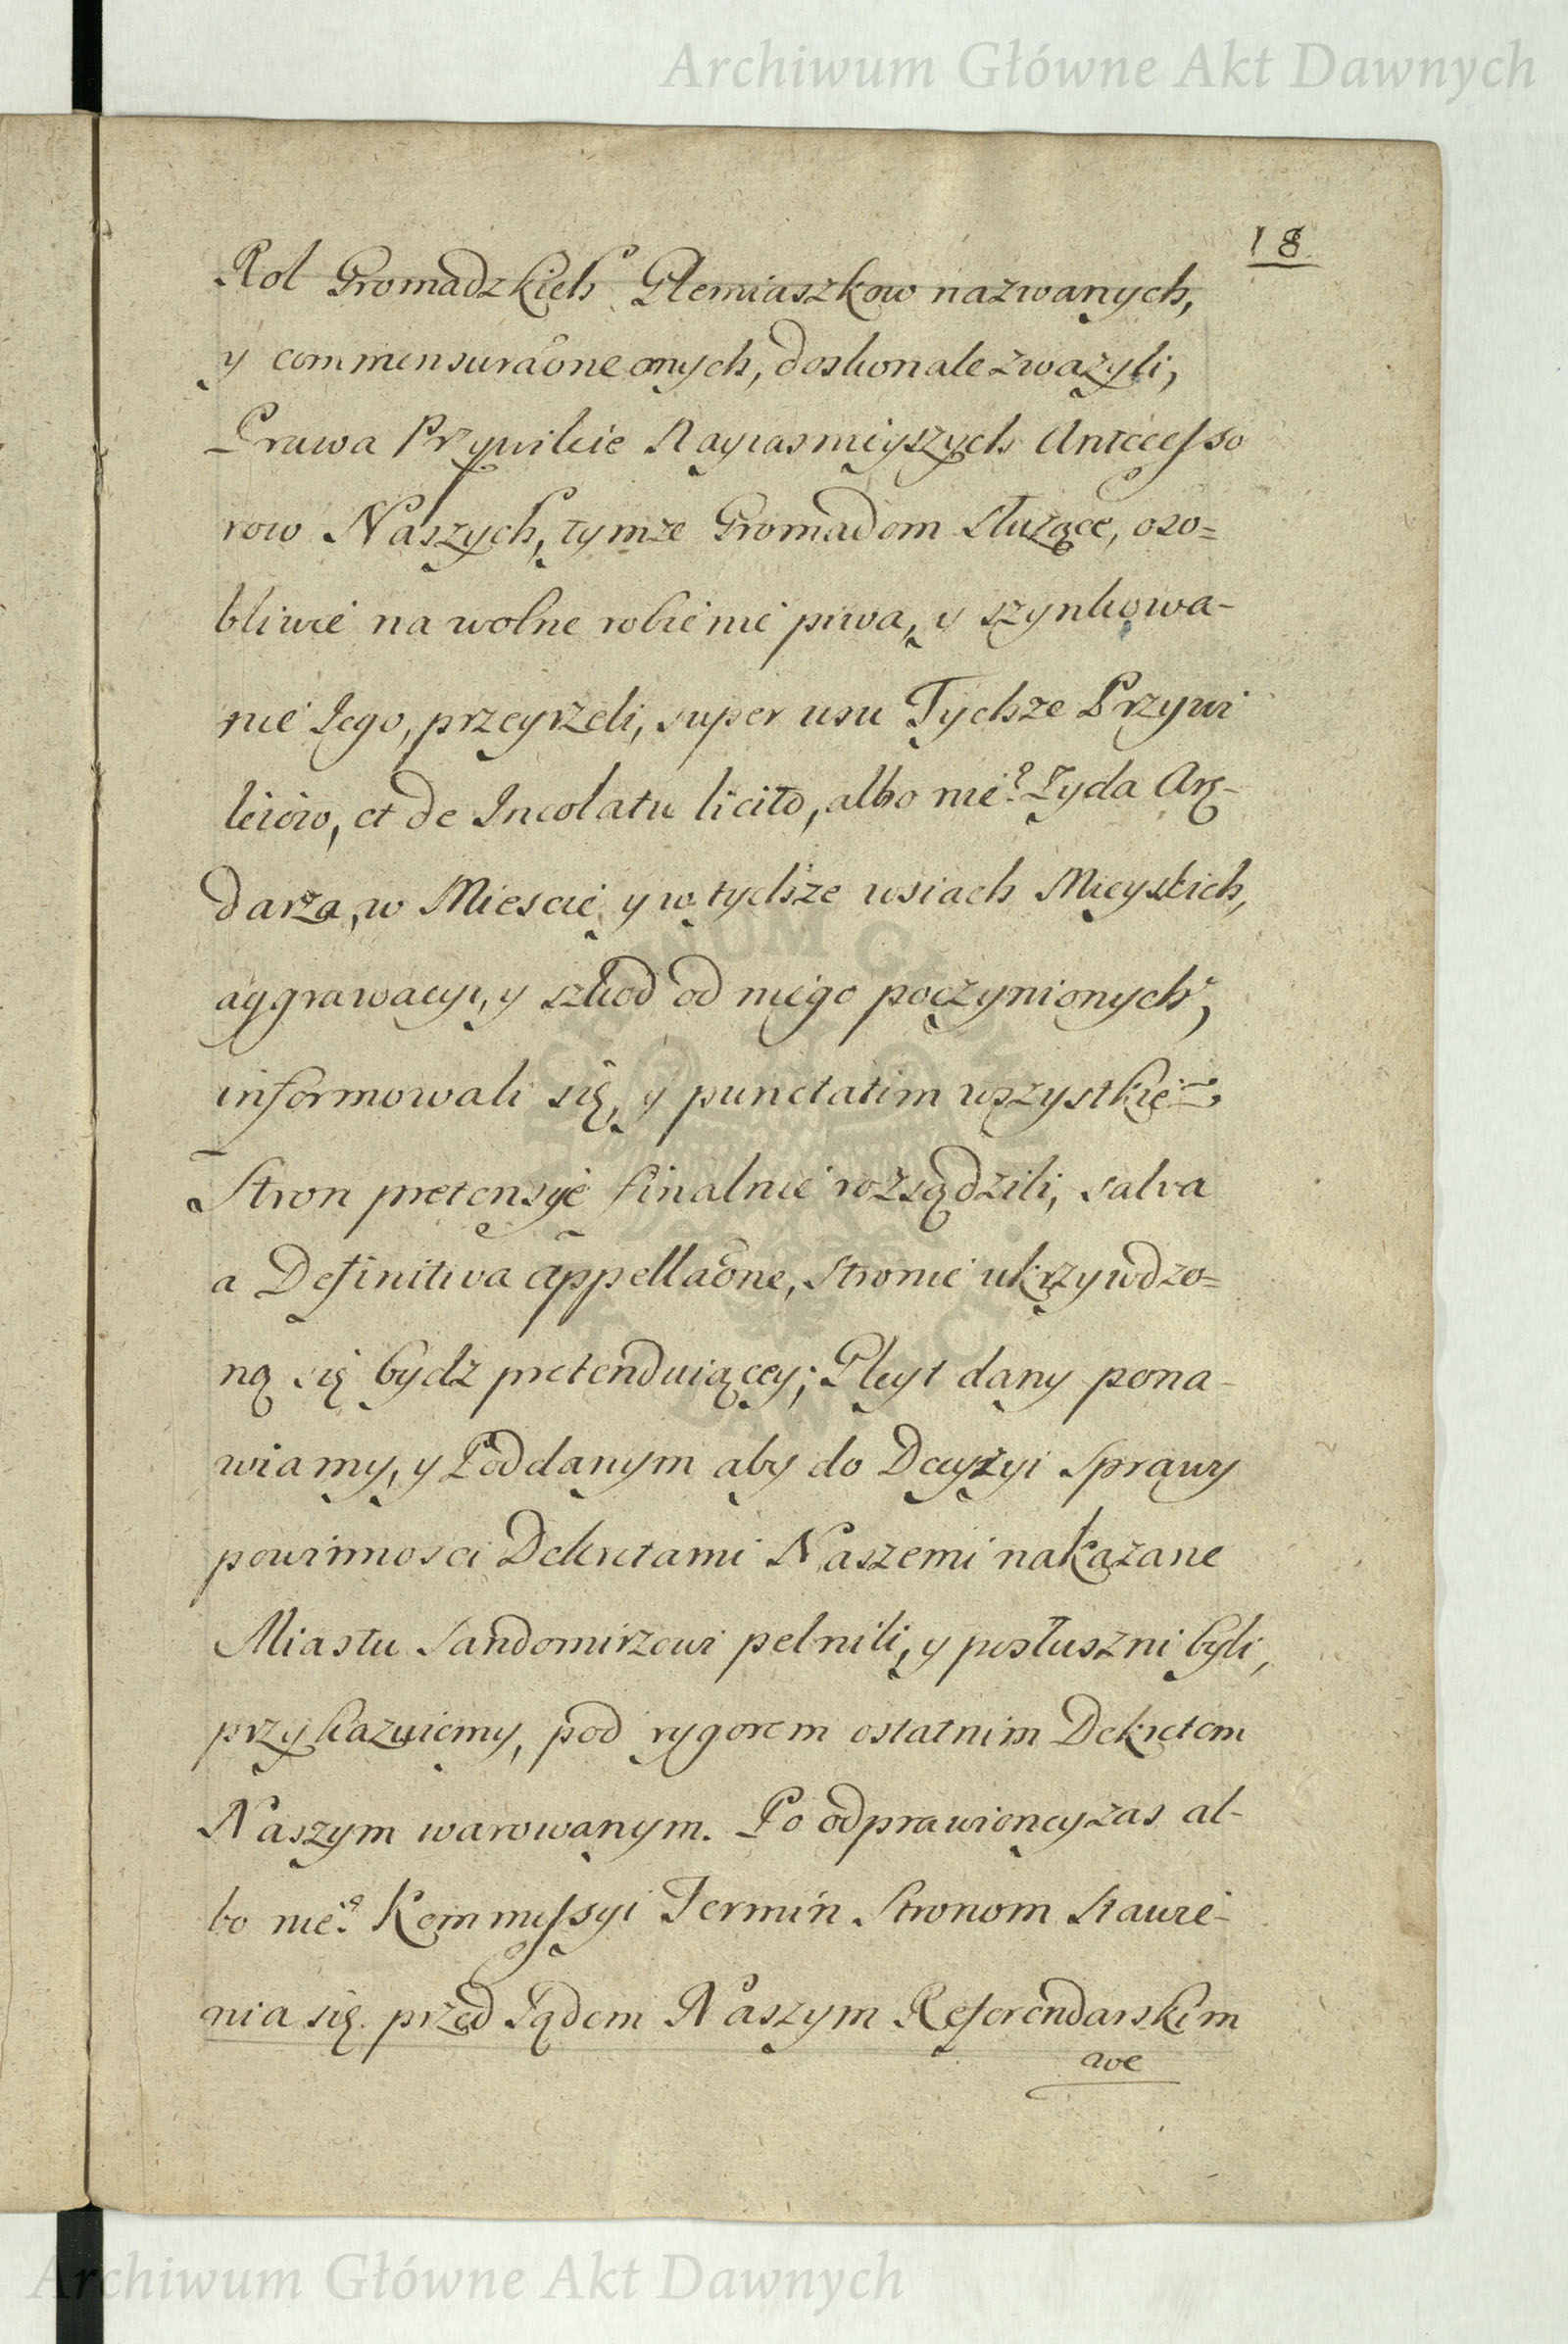 Archiwum Główne Akt Dawnych
18
Rol Gromadzkich Plemiaszkow nazwanych,
y commensuraõne onych, doskonale zwazyli,
Prawa Przywileie Nayiasnieyszych Antecesso
row Naszych, tymze Gromadom służące, oso=
bliwie na wolne robienie piwa, y szynkowa-
nie Jego, przeyrzeli, super usu Tychze Przywi
leiów, et de Incolatu licito, albo nie? Zyda Arę-
darza, w Miescie y w tychze wsiach Mieyskich,
aggrawacyi, y szkod od niego poczynionych,
informowali się, y punctatim wszystkie
Stron pretensye finalnie rozsądzili, salva
a Definitiva appellaõne, stronie ukrzywdzo=
ną się bydz pretenduiącey; Gleyt dany pona-
wiamy, y Poddanym aby do Decyzyi Sprawy
powinnosci Dekretami Naszemi nakazane
Miastu Sandomirzowi pelnili, y posłuszni byli,
przykazuiemy, pod rygorem ostatnim Dekretem
Naszym warowanym. Po odprawioney zas al-
bo nie? Kommissyi Termin Stronom stawie-
nia się przed Sądem Naszym Referendarskim
we
Archiwum Główne Akt Dawnych